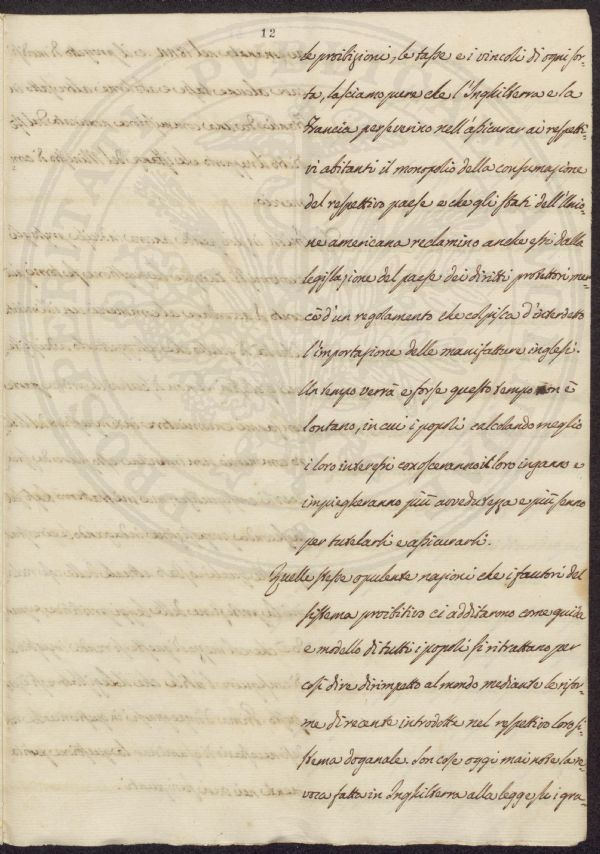 12
le proibizioni, le tasse e i vincoli di ogni sor-
ta, lasciamo pure che l'Inghilterra e la
Francia perseverino nell'assicurar ai rispetti-
vi abitanti il monopolio della consumazione
del rispettivo paese e che gli stati dell'Unio-
ne americana reclamino anche essi dalla
legislazione del paese dei diritti protettori mer-
cè d'un regolamento che colpisca d'interdetto
l'importazione delle manifatture inglesi.
Un tempo verrà e forse questo tempo non è
lontano, in cui i popoli calcolando meglio
i loro interessi conosceranno il loro inganno e
impiegheranno più avvedutezza e più senno
per tutelarli e assicurarli.
Quelle stesse opulente nazioni che i fautori del
sistema proibitivo ci additarono come guida
e modello di tutti i popoli si ritrattano per
così dire dirimpetto al mondo mediante le rifor-
me di recente introdotte nel rispettivo loro si-
stema doganale. Son cose oggi mai note la re-
voca fatta in Inghilterra alla legge su i gra-